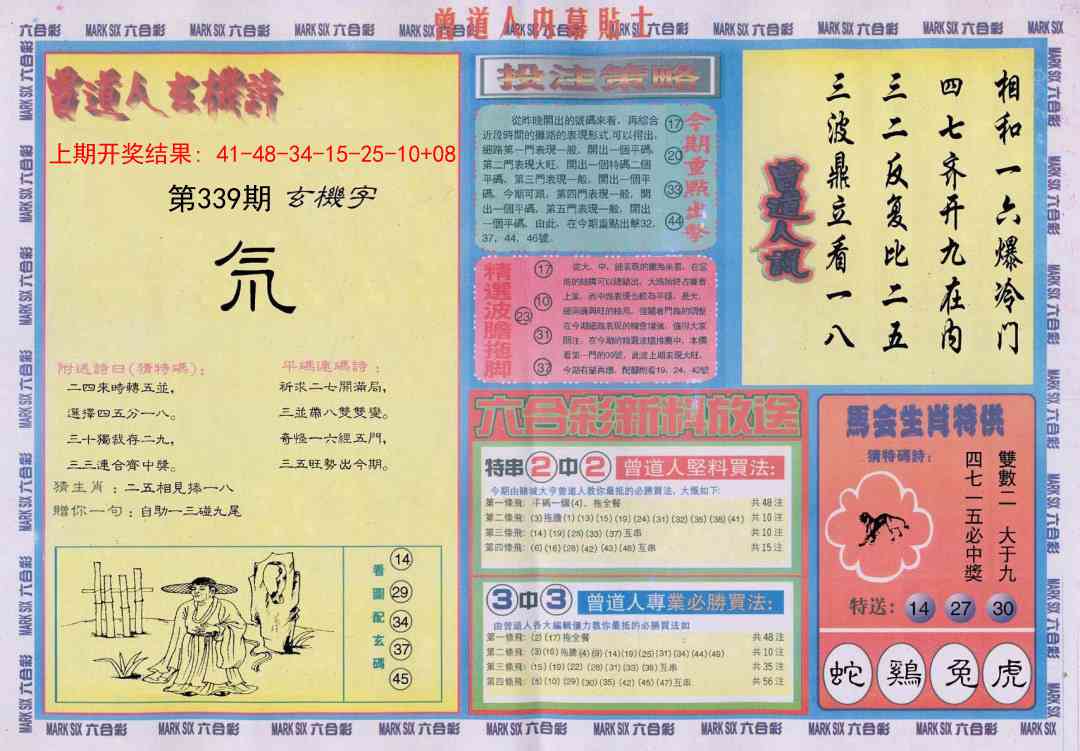 曾道人内幕貼士
六合彩 MARK SIX 六合彩 MARK SIX 六合彩 MARK SIX 六合彩 MARK SIX 六合彩
曾道人玄機詩
上期开奖结果：41-48-34-15-25-10+08
第339期 玄機字
氘
附送詩曰(猜特碼)：
二四來時轉五並，
選擇四五分一八。
三十獨裁存二九，
三三連合齊中獎。
平碼連碼詩：
祈求二七開滿局，
三並帶八雙雙變。
奇怪一六經五門，
三五旺勢出今期。
猜生肖：二五相見捧一八
贈你一句：自助一三碰九尾
看圖配玄碼
14
29
34
37
45
投注策略
從昨晚開出的號碼來看，再綜合
近段時間的攤路的表現形式.可以得出.
細路第一門表現一般，開出一個平碼.
第二門表現大旺，開出一個特碼二個
平碼，第三門表現一般，開出一個平
碼，今期可跟，第四門表現一般，開
出一個平碼，第五門表現一般，開出
一個平碼，由此，在今期重點出擊32.
37，44，46號.
17
20
33
44
今期重點出擊
精選波膽拖脚
17
10
23
31
37
六合彩新料放送
特串2中2 曾道人堅料買法：
今期由賭城大亨曾道人教你最抵的必勝買法，大概如下：
第一條飛：平碼一個(4)、拖全餐 共48注
第二條飛：(3)拖膽(1)(13)(15)(19)(24)(31)(32)(35)(36)(41) 共10注
第三條飛：(14)(19)(25)(33)(37)互串 共10注
第四條飛：(6)(16)(28)(42)(43)(46)互串 共15注
3中3 曾道人專業必勝買法：
由曾道人各大編輯僅力教你最抵的必勝買法如
第一條飛：(2)(17)拖全餐 共48注
第二條飛：(3)(16)拖膽(4)(9)(14)(19)(25)(31)(34)(44)(49) 共10注
第三條飛：(15)(19)(22)(28)(31)(33)(36)互串 共35注
第四條飛：(5)(10)(29)(30)(35)(42)(45)(47)互串 共56注
相和一六爆冷门
四七齐开九在内
三二反复比二五
三波鼎立看一八
曾道人讖
馬会生肖特供
猜特碼詩：
雙數二一大于九
四七一五必中獎
特送：14 27 30
蛇 鷄 兔 虎
MARK SIX 六合彩 MARK SIX 六合彩 MARK SIX 六合彩 MARK SIX 六合彩